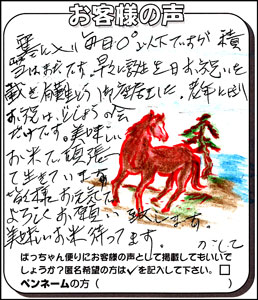 お客様の声
寒に入り毎日0°以下ですが 積
雪はまだです。早々に誕生日お祝いを
戴き有難とう御座居ました。老年に
お祝は、
だけです。美味しい
お米で頑張
て生きています
皆様お元気で
よろしくお願い致します。
美味しいお米待ってます。
ばっちゃん便りにお客様の声として掲載してもいいで
しょうか？匿名希望の方は✓を記入して下さい。□
ペンネームの方（　　　　　　　　）